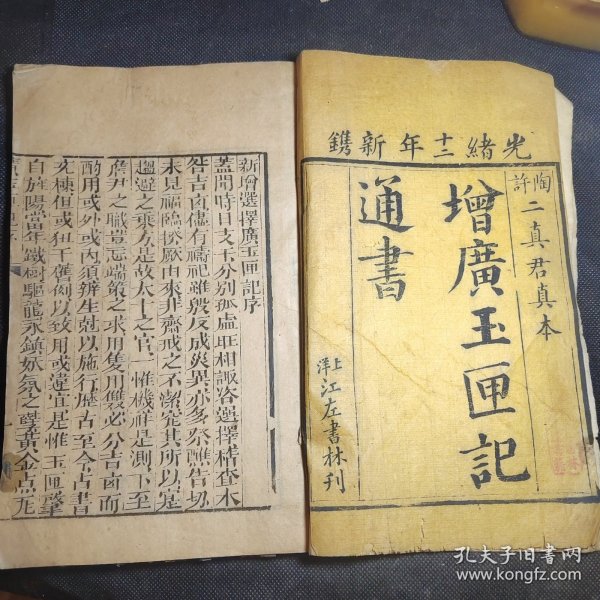 光緒十二年新鐫
陶許二真君真本
增廣玉匣記
通書
上洋江左書林刊
新增選擇廣玉匣記序
蓋聞時日支干分別孤虛旺相諏咨選擇稽查木
咎吉凶儘有禱祀雖殷反成災異亦多祭醮告切
未見福臨揆厥由來非齋戒之不潔究其所以寔
趨避之乖方是故太卜之官惟機祥是測下至
詹尹之職豈忘端策之求用隻用雙必分吉凶而
酌用或外或內須辨生尅以施行歷古至今占書
充棟但或狃于舊例以致用或違宜是惟玉匣肇
自旌陽當年鐵樹驅龍永鎮妖氛之孽黃金點
孔夫子旧书网
www.kongfz.com